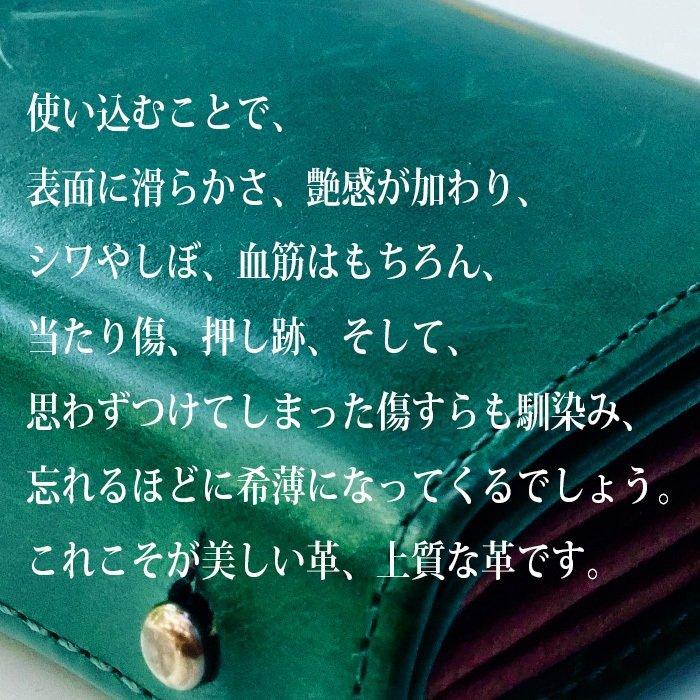 使い込むことで、
表面に滑らかさ、艶感が加わり、
シワやしぼ、血筋はもちろん、
当たり傷、押し跡、そして、
思わずつけてしまった傷すらも馴染み、
忘れるほどに希薄になってくるでしょう。
これこそが美しい革、上質な革です。